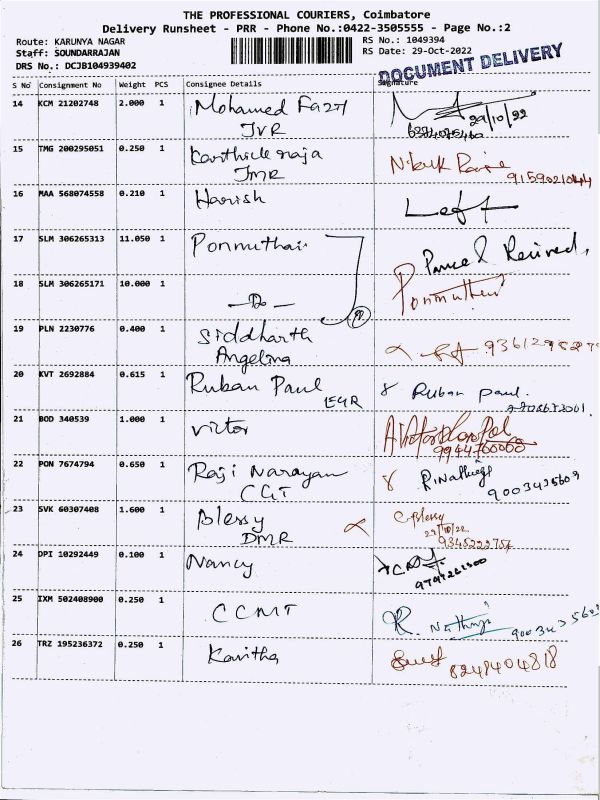 THE PROFESSIONAL COURIERS, Coimbatore
Delivery Runsheet - PRR - Phone No.:0422-3505555 - Page No.:2
Route: KARUNYA NAGAR
RS No.: 1049394
Staff: SOUNDARRAJAN
RS Date: 29-Oct-2022
DRS No.: DCJB104939402
DOCUMENT DELIVERY
S No Consignment No Weight PCS Consignee Details Signature
14 KCM 21202748 2.000 1 Mohamed Fazil
JVR
29/10/22
15 TMG 200295051 0.250 1 Karthick raja
JMR
16 MAA 568074558 0.210 1 Harish Left
17 SLM 306265313 11.050 1 Ponmuthai
Received
18 SLM 306265171 10.000 1 - Do -
19 PLN 2230776 0.400 1 Siddharth
Angelina
20 KVT 2692884 0.615 1 Ruban Paul Ruban paul.
21 BOD 340539 1.000 1 victor
9944700000
22 PON 7674794 0.650 1 Raji Narayan
CGT
9003435609
23 SVK 60307408 1.600 1 Blessy Blessy
DMR
29/10/22
9345222757
24 DPI 10292449 0.100 1 Nancy
25 IXM 502408900 0.250 1 CCMT
26 TRZ 195236372 0.250 1 Kavitha 8248404818